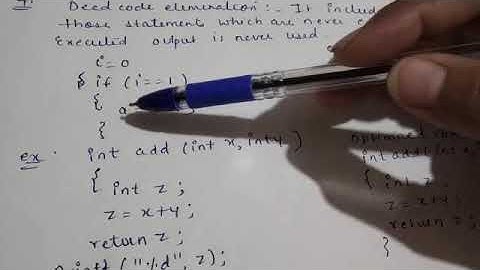 Dead code elimination:- It includ
those statement which are never e
Executed output is never used.
i=0
if (i==1)
{
a
}
ex: int add (int x, int y)
{ int z;
z=x+y;
return z;
printf ("%d", z);
int add (int x,
{ int z;
z=x+y;
return z;
}